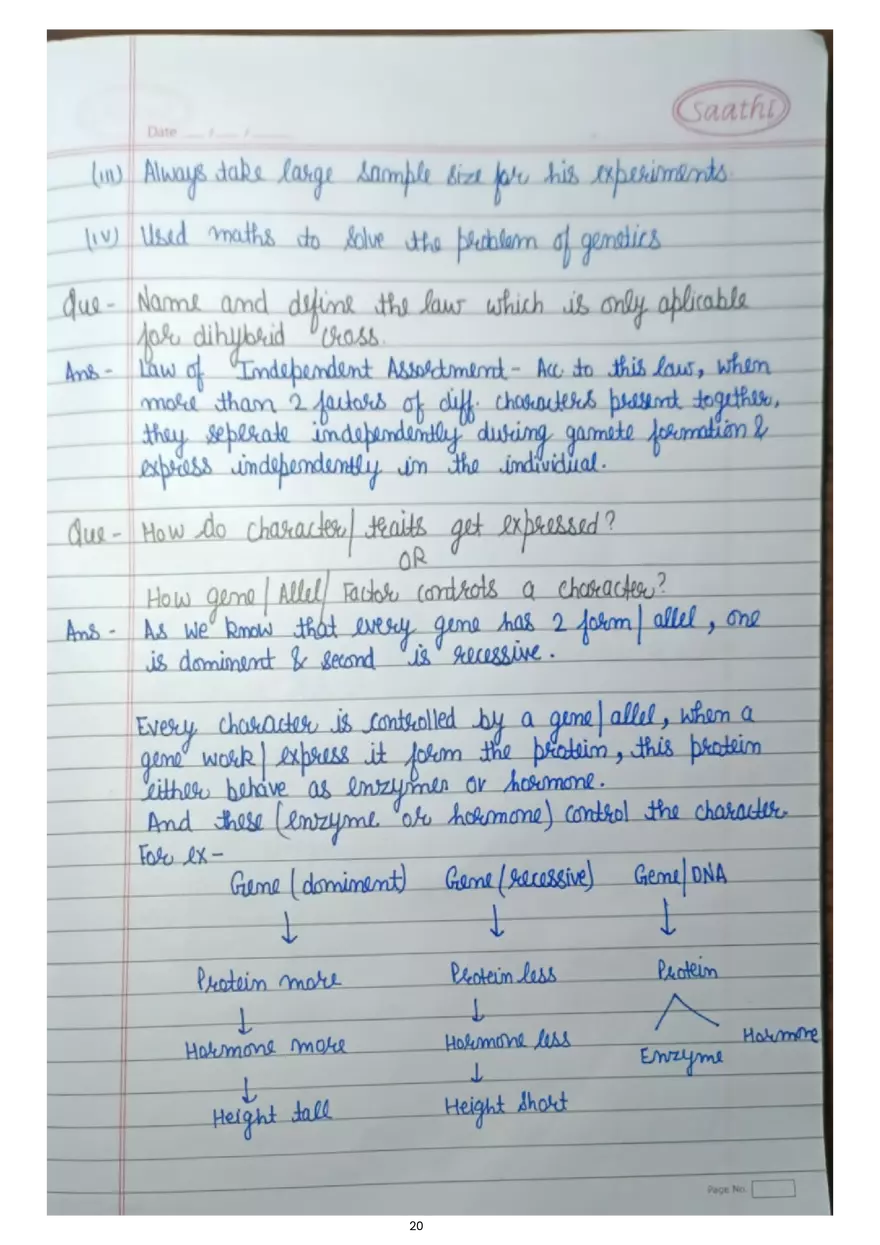 saathi
Date
(iii) Always take large sample size for his experiments
(iv) Used maths to solve the problem of genetics
Que - Name and define the law which is only aplicable
for dihybrid cross.
Ans - Law of Independent Assortment - Acc to this law, when
more than 2 factors of diff. characters present together,
they seperate independently during gamete formation &
express independently in the individual.
Que - How do character/ traits get expressed?
OR
How gene/Allel/ Factor controls a character?
Ans - As we know that every gene has 2 form/allel, one
is dominent & second is recessive.
Every character is controlled by a gene/allel, when a
gene work/ express it form the protein, this protein
either behave as enzymes or hormone.
And these (enzyme or hormone) control the character
For ex-
Gene (dominent) Gene (recessive) Gene/DNA
↓ ↓ ↓
Protein more Protein less Protein
↓ ↓
Hormone more Hormone less Enzyme Hormone
↓ ↓
Height tall Height Short
Page No.
20